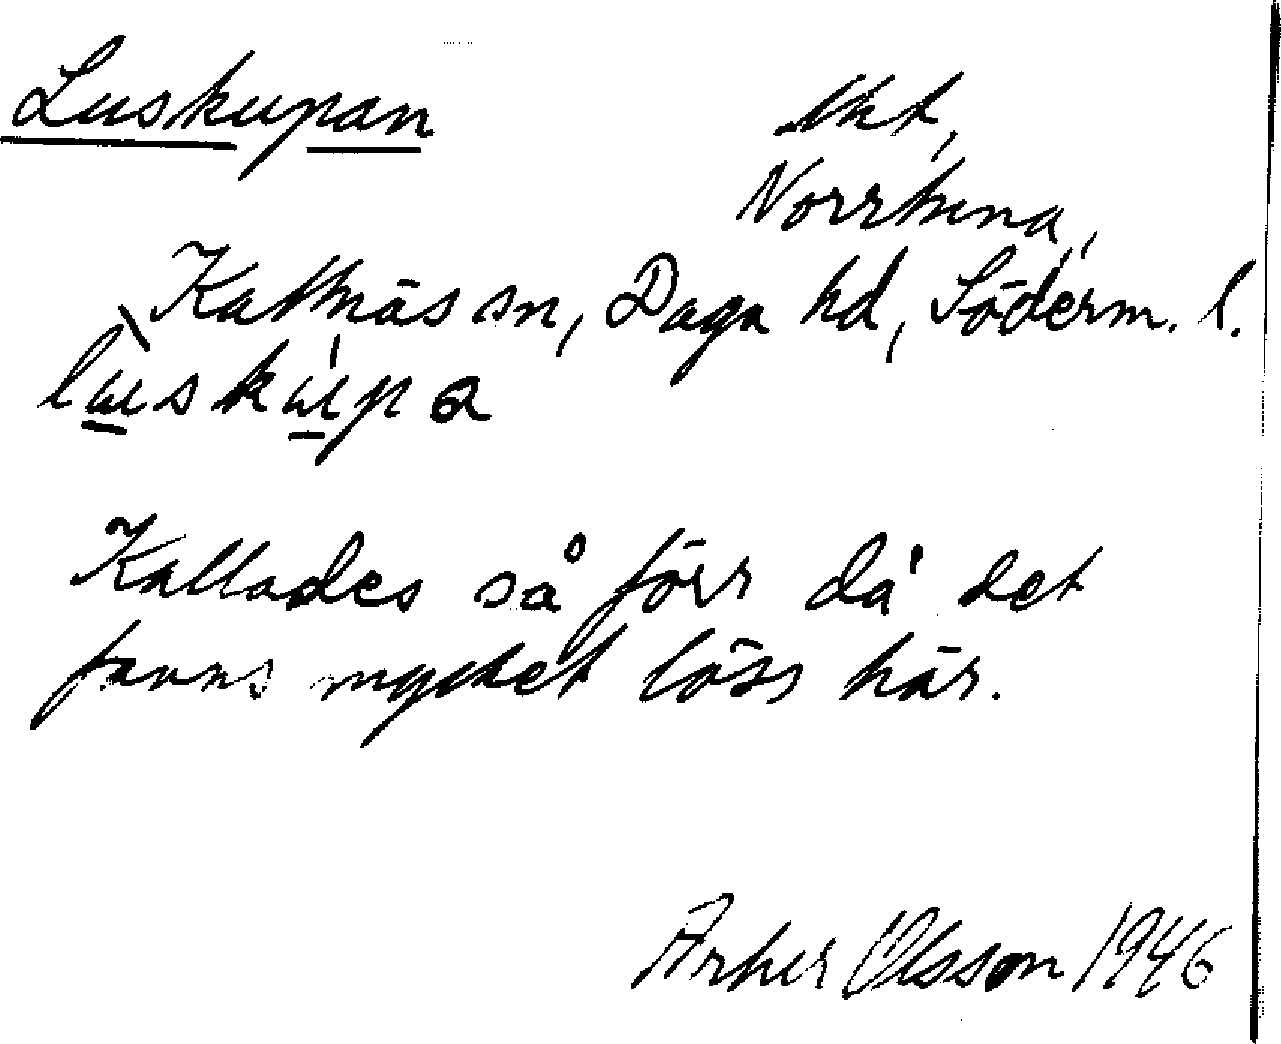 Luskupan
lht,
Norrtuna,
Kattnäs sn, Daga hd, Söderm. l.
lùskúpa
Kallades så förr då det
fanns mycket löss här.
Olsson 1946